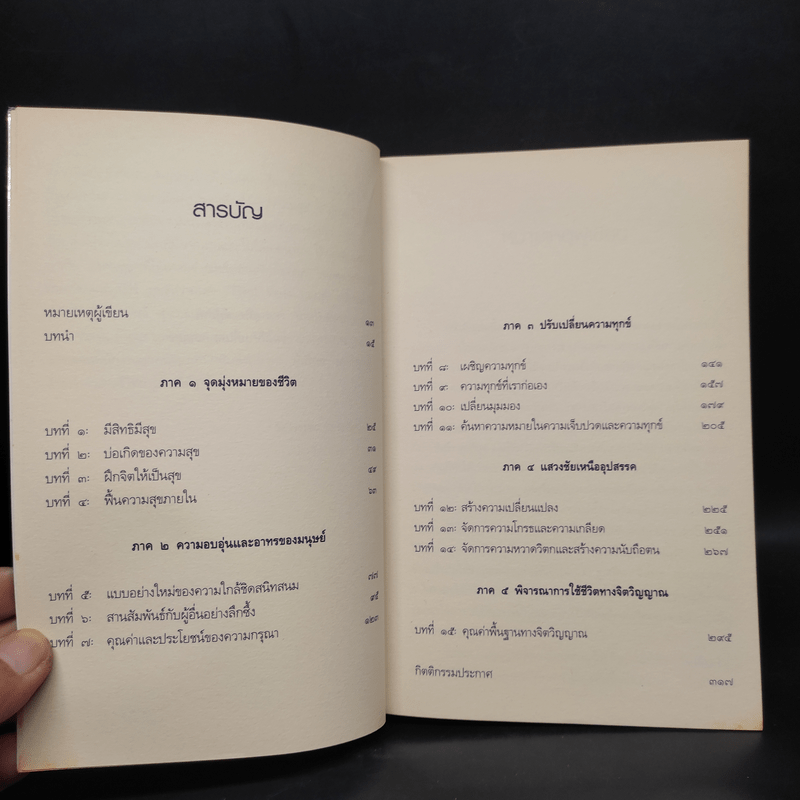 สารบัญ
หมายเหตุผู้เขียน ๑๓
บทนำ ๑๕
ภาค ๑ จุดมุ่งหมายของชีวิต
บทที่ ๑: มีสิทธิมีสุข ๒๕
บทที่ ๒: บ่อเกิดของความสุข ๓๑
บทที่ ๓: ฝึกจิตให้เป็นสุข ๔๙
บทที่ ๔: ฟื้นความสุขภายใน ๖๓
ภาค ๒ ความอบอุ่นและอาทรของมนุษย์
บทที่ ๕: แบบอย่างใหม่ของความใกล้ชิดสนิทสนม ๗๗
บทที่ ๖: สานสัมพันธ์กับผู้อื่นอย่างลึกซึ้ง ๙๕
บทที่ ๗: คุณค่าและประโยชน์ของความกรุณา ๑๒๓
ภาค ๓ ปรับเปลี่ยนความทุกข์
บทที่ ๘: เผชิญความทุกข์ ๑๔๑
บทที่ ๙: ความทุกข์ที่เราก่อเอง ๑๕๗
บทที่ ๑๐: เปลี่ยนมุมมอง ๑๗๙
บทที่ ๑๑: ค้นหาความหมายในความเจ็บปวดและความทุกข์ ๒๐๕
ภาค ๔ แสวงชัยเหนืออุปสรรค
บทที่ ๑๒: สร้างความเปลี่ยนแปลง ๒๒๕
บทที่ ๑๓: จัดการความโกรธและความเกลียด ๒๕๑
บทที่ ๑๔: จัดการความหวาดวิตกและสร้างความนับถือตน ๒๖๗
ภาค ๕ พิจารณาการใช้ชีวิตทางจิตวิญญาณ
บทที่ ๑๕: คุณค่าพื้นฐานทางจิตวิญญาณ ๒๙๕
กิตติกรรมประกาศ ๓๑๗